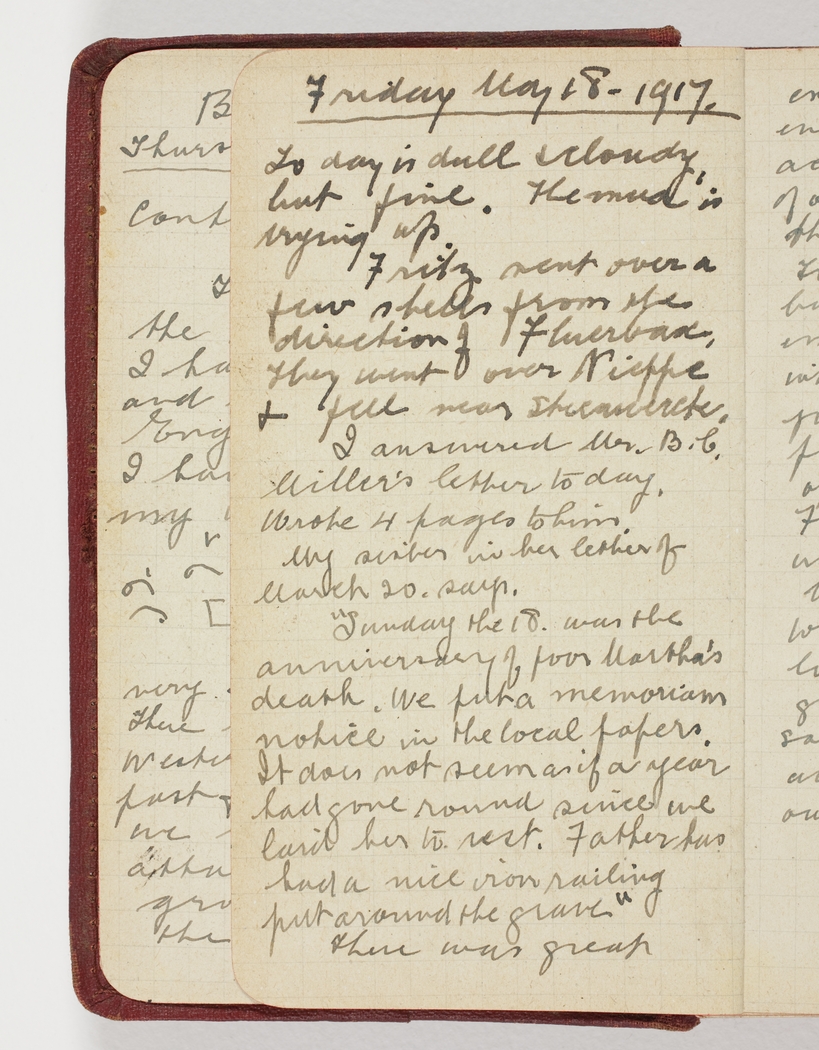 Friday May 18 - 1917.
To day is dull & cloudy,
but fine. The mud is
drying up.
Fritz sent over a
few shells from the
direction of
They went over Nieppe
& fell near Steenwerck.
I answered Mr. B.C.
Miller's letter to day.
Wrote 4 pages to him.
My sister in her letter of
March 20. says.
"Sunday the 18. was the
anniversary of poor Martha's
death. We put a memoriam
notice in the local papers.
It does not seem as if a year
had gone round since we
laid her to rest. Father has
had a nice iron railing
put around the grave"
There was great
B
Thurs
Cont
the
I ha
and
Eng
I ha
my
very
There
West
past
we
atta
gro
the